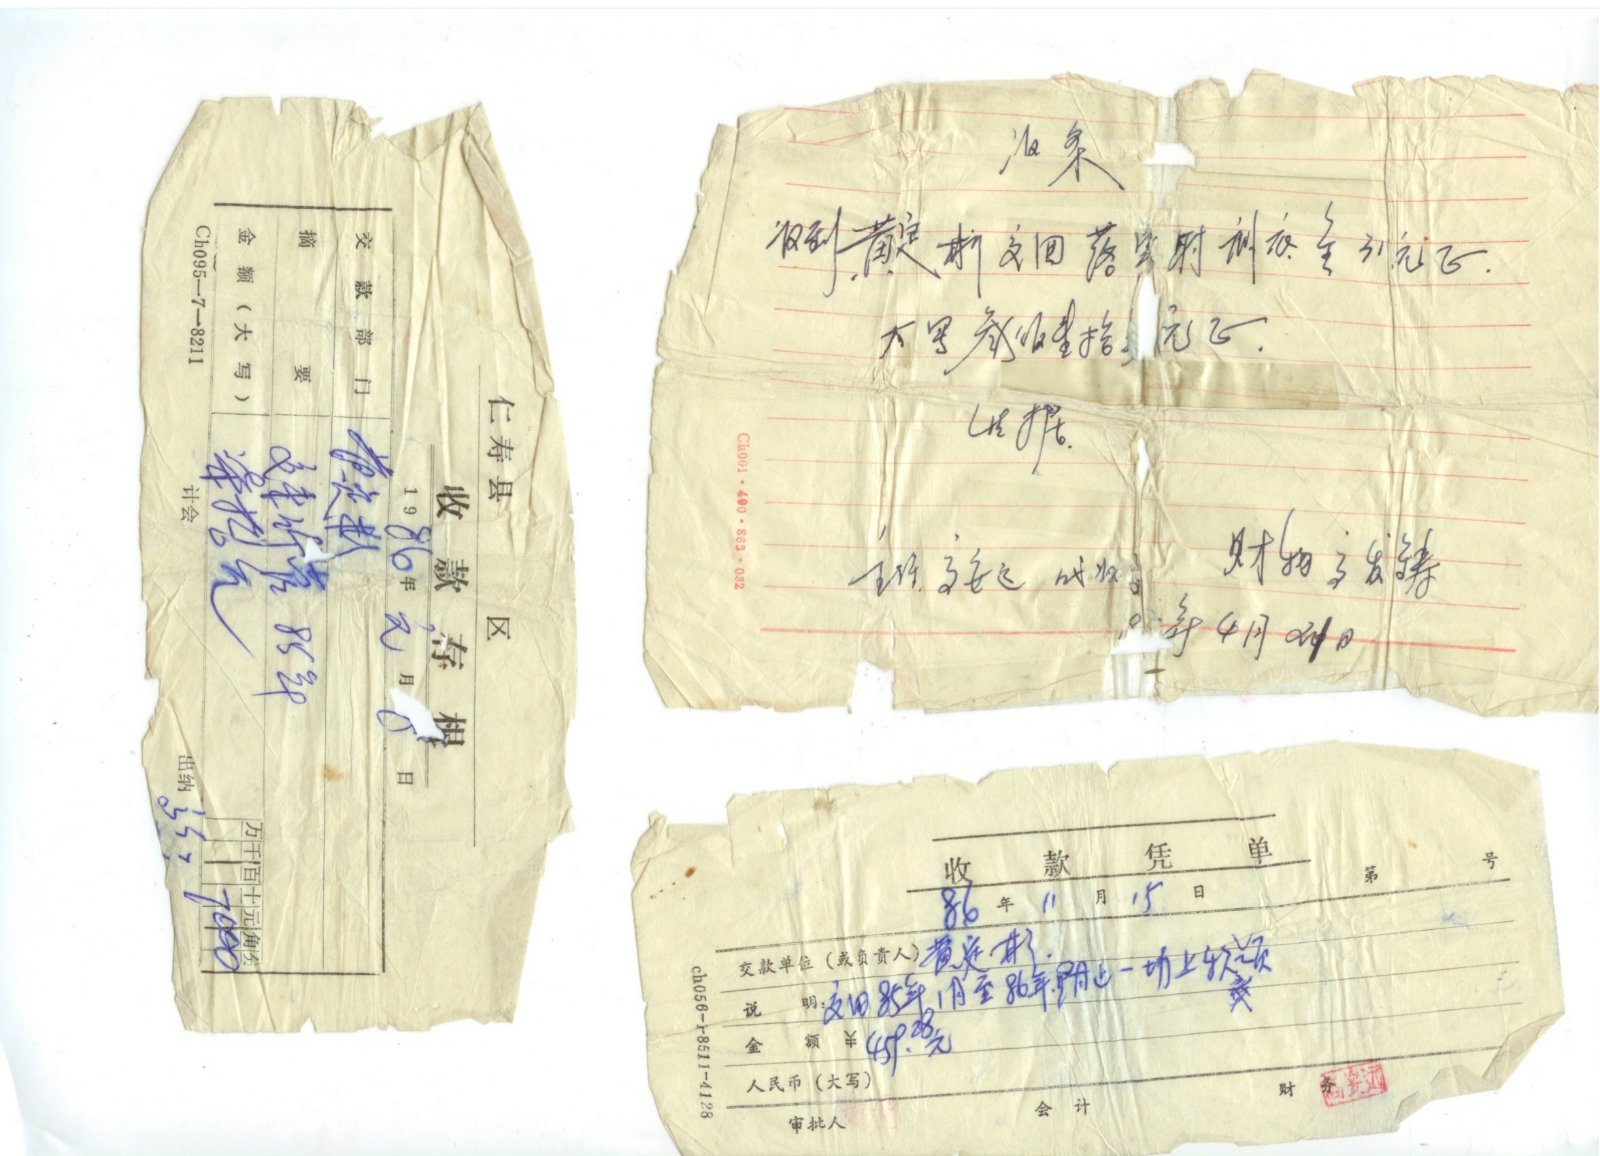 仁寿县 区
收款存根
1986年元月5日
交款部门 黄定彬
摘要 85年
金额(大写) 柒拾元
万千百十元角分
7000
会计
出纳
Ch095—7—8211
收条
收到黄定彬交回落实 训 金 元正.
大写 元正.
此据.
主任 高安远 代收
财物 高发
年4月21日
Ch001·400·863·032
收款凭单
第 号
86年11月15日
交款单位(或负责人) 黄定彬.
说明: 交回85年1月至86年 月止一切上欠款
金额 459.28元
人民币(大写)
财务 高安远
会计
审批人
ch056-1-8511-4128